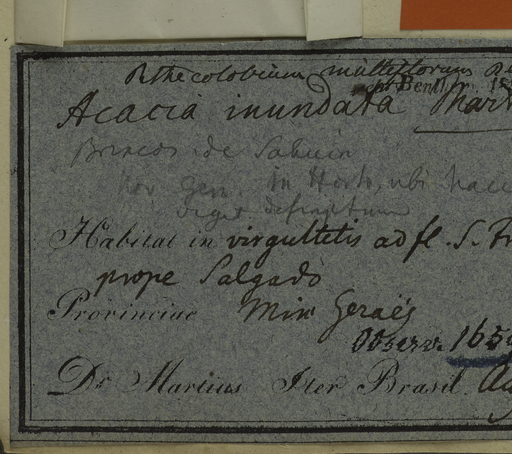 Pithecolobium multiflorum
Benth.
Acacia inundata Mart
Brincos de Sahuin
Nov. Gen. In Horto, ubi
Habitat in virgultetis ad fl. S. Fr
prope Salgado
Provinciae Min Geraës
Observ. 165
Dr. Martius Iter Brasil. Au